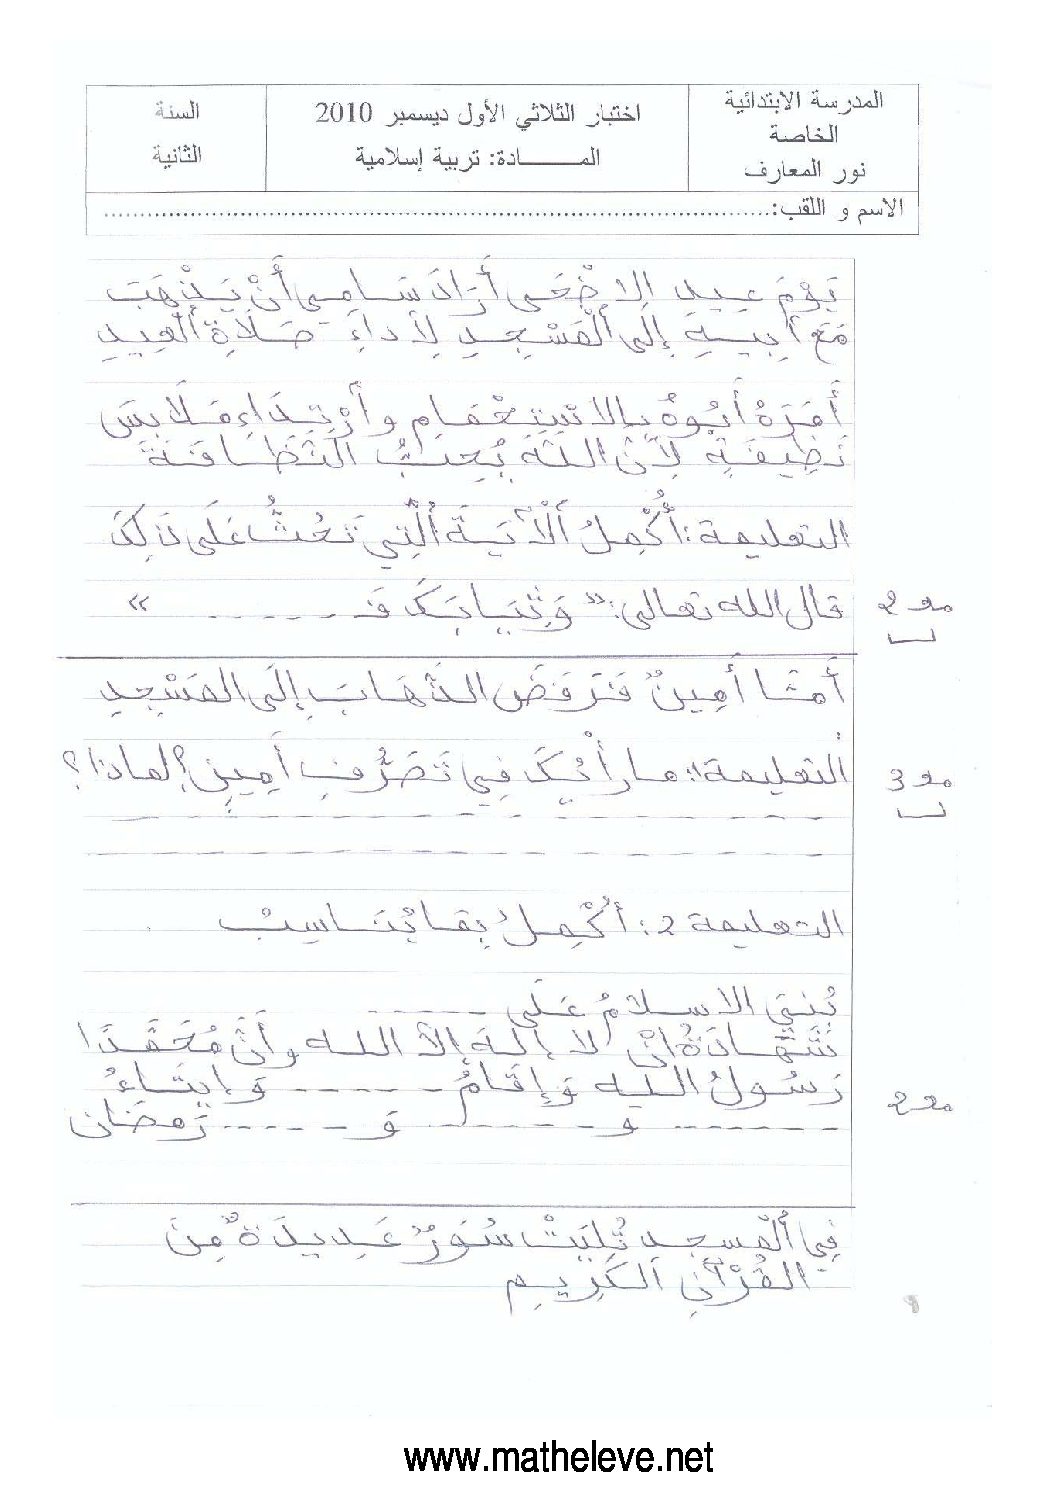 المدرسة الابتدائية
الخاصة
نور المعارف
اختبار الثلاثي الأول ديسمبر 2010
المــــــــادة: تربية إسلامية
السنة
الثانية
الاسم و اللقب:......................................................................
يَوْمَ عيد الاِضْحَى أَرَادَ سَامِي أَنْ يَذْهَبَ
مَعَ أَبِيهِ إِلَى اَلْمَسْجِدِ لِأَداءِ صَلَاةِ اَلْعِيدِ
أَمَرَهُ أَبُوهُ بِالاسْتِحْمَامِ وَارْتِدَاءِ مَلَابِسَ
نَظِيفَةٍ لِأَنَّ اللَّهَ يُحِبُّ النَّظَافَةَ
التعليمة: أُكْمِلُ اَلْآيَةَ اُلَّتِي تَحُثُّ عَلَى ذَلِكَ
قال الله تعالى: « وَثِيَابَكَ فَـ ------ »
مع 2
ب
أَمَّا أَمِينٌ فَرَفَضَ الذَّهَابَ إِلَى المَسْجِدِ
التعليمة1: ما رَأْيُكَ فِي تَصَرُّفِ أَمِينٍ؟ لماذا؟
مع 3
ب
التعليمة 2: أُكْمِلُ بِمَا يُنَاسِبُ
بُنِيَ الاسلامُ عَلَى ------
شَهَادَةُ انْ لا إلهَ إلاَّ الله وأَنَّ مُحَمَّدًا
رَسُولُ الله وَإِقَامُ ------ وَإِيتَاءُ
------ وَ ------ وَ ------ رَمضان
مع 2
فِي اُلْمسجد تُلِيَتْ سُوَرٌ عَدِيدَةٌ مِنَ
القُرْآنِ اَلكَرِيمِ
www.matheleve.net